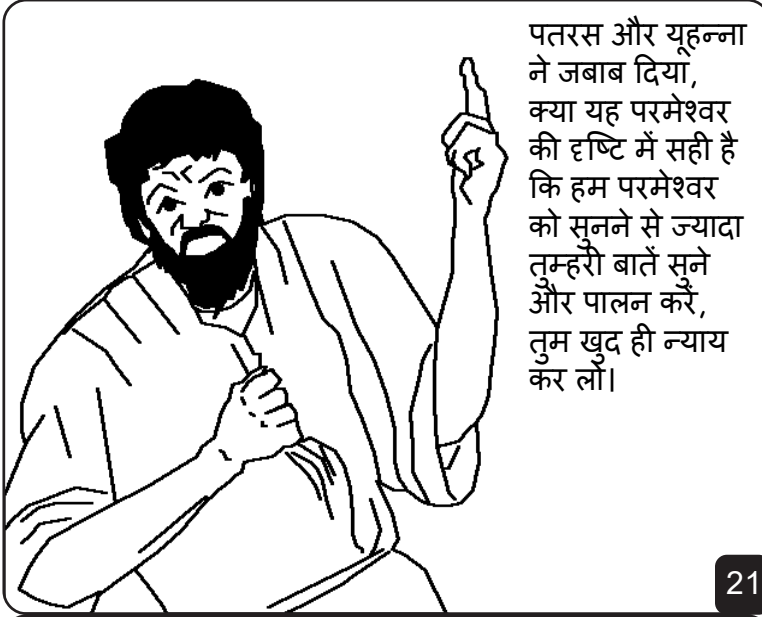 पतरस और यूहन्ना
ने जबाब दिया,
क्या यह परमेश्वर
की दृष्टि में सही है
कि हम परमेश्वर
को सुनने से ज्यादा
तुम्हरी बातें सुने
और पालन करें,
तुम खुद ही न्याय
कर लो।
21